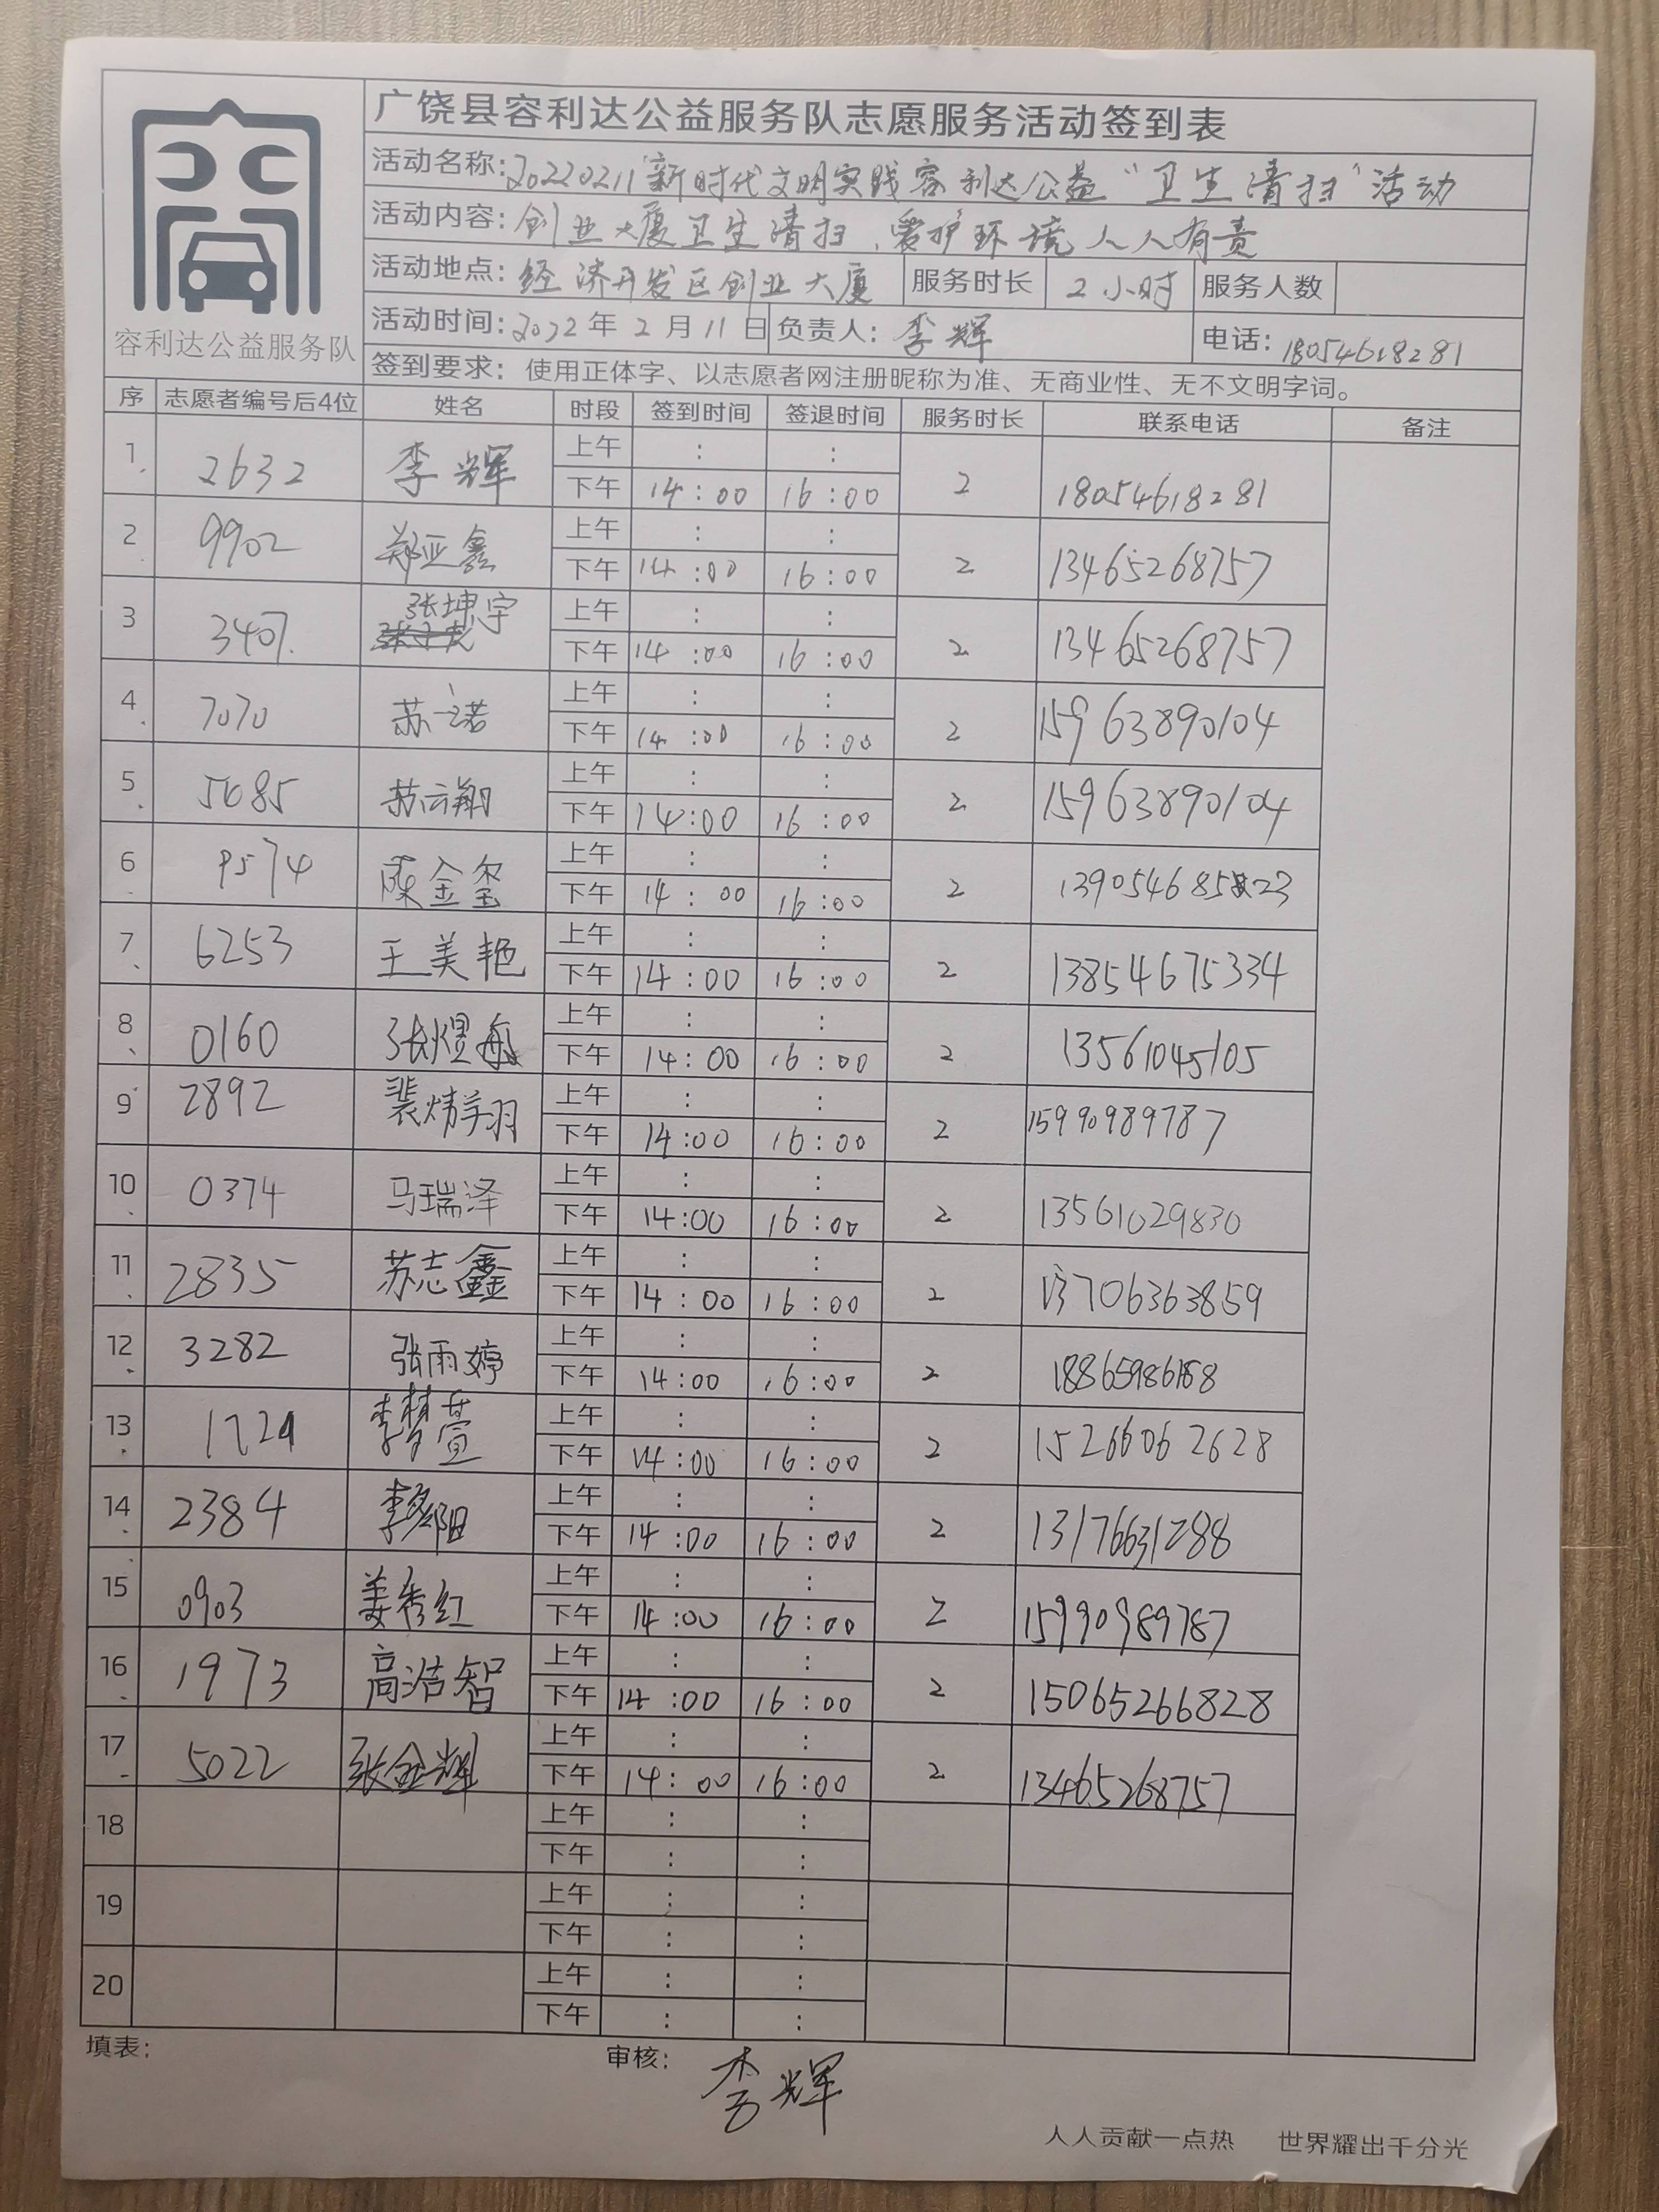 广饶县容利达公益服务队志愿服务活动签到表
活动名称:20220211新时代文明实践容利达公益“卫生清扫”活动
活动内容:创业大厦卫生清扫、爱护环境人人有责
活动地点:经济开发区创业大厦 服务时长 2小时 服务人数
活动时间:2022年2月11日 负责人:李辉 电话:18054618281
容利达公益服务队
签到要求:使用正体字、以志愿者网注册昵称为准、无商业性、无不文明字词。
序 志愿者编号后4位 姓名 时段 签到时间 签退时间 服务时长 联系电话 备注
1 2632 李辉 上午 : : 2 18054618281
下午 14:00 16:00
2 9902 郑亚鑫 上午 : : 2 13465268757
下午 14:00 16:00
3 3407 张坤宇 上午 : : 2 13465268757
下午 14:00 16:00
4 7070 苏一诺 上午 : : 2 15963890104
下午 14:00 16:00
5 5085 苏云翔 上午 : : 2 15963890104
下午 14:00 16:00
6 9574 陈金玺 上午 : : 2
下午 14:00 16:00
7 6253 王美艳 上午 : : 2 13854675334
下午 14:00 16:00
8 0160 张煜 上午 : : 2 13561045105
下午 14:00 16:00
9 2892 裴炜翔 上午 : : 2 15990989787
下午 14:00 16:00
10 0374 马瑞泽 上午 : : 2 13561029830
下午 14:00 16:00
11 2835 苏志鑫 上午 : : 2 13706363859
下午 14:00 16:00
12 3282 张雨婷 上午 : : 2
下午 14:00 16:00
13 李梦萱 上午 : : 2 15266062628
下午 14:00 16:00
14 2384 上午 : : 2 13176631288
下午 14:00 16:00
15 0903 姜秀红 上午 : : 2 15990989787
下午 14:00 16:00
16 1973 高浩智 上午 : : 2 15065266828
下午 14:00 16:00
17 5022 张金辉 上午 : : 2 13465268757
下午 14:00 16:00
18 上午 : :
下午 : :
19 上午 : :
下午 : :
20 上午 : :
下午 : :
填表: 审核: 李辉
人人贡献一点热 世界耀出千分光